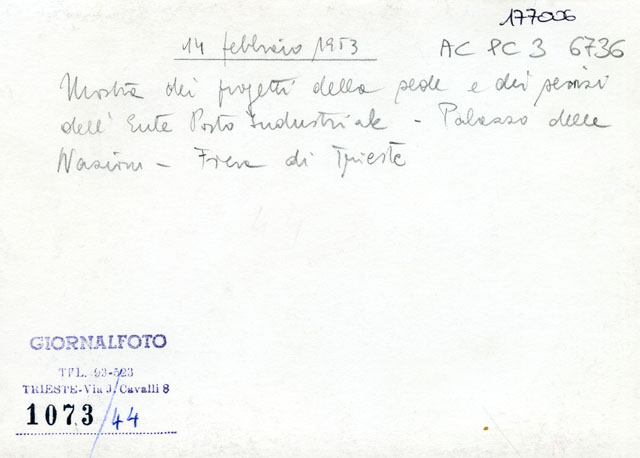 177006
14 febbraio 1953 AC PC 3 6736
Mostra dei progetti della sede e dei servizi
dell' Ente Porto Industriale - Palazzo delle
Nazioni - Fiera di Trieste
GIORNALFOTO
TEL. 93-523
TRIESTE-Via J. Cavalli 8
1073/44